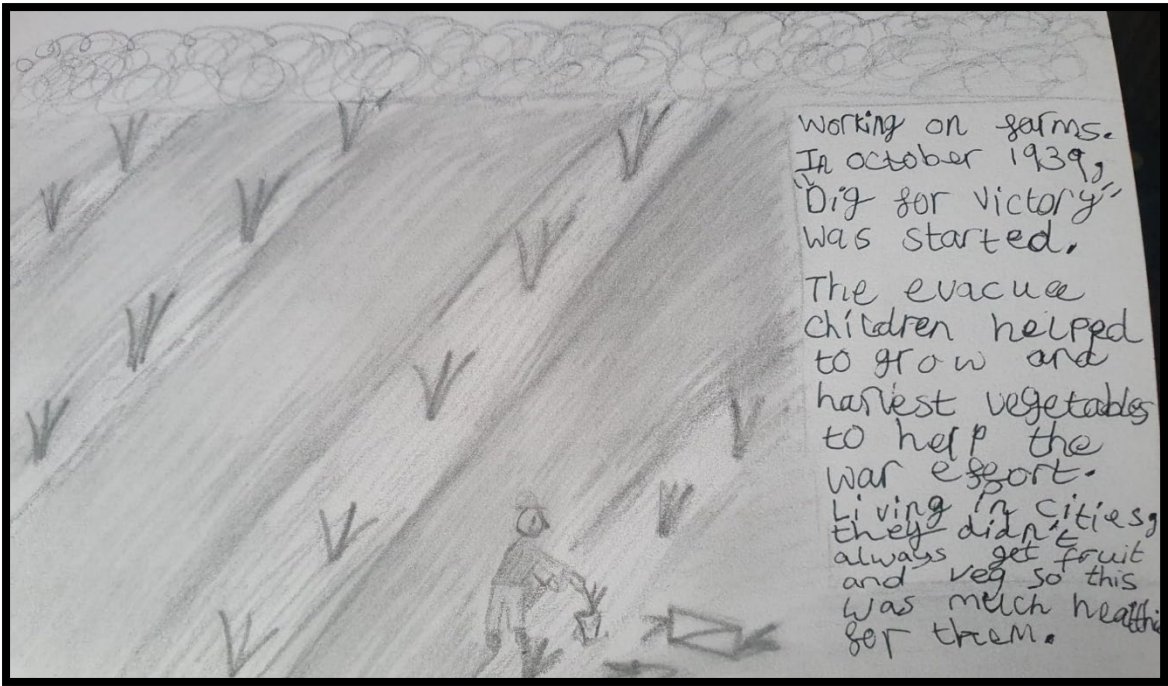 Working on farms.
In october 1939,
"Dig for victory"
was started.
The evacuee
children helped
to grow and
harvest vegetables
to help the
war effort.
Living in cities,
they didn't
always get fruit
and veg so this
was much
for them.